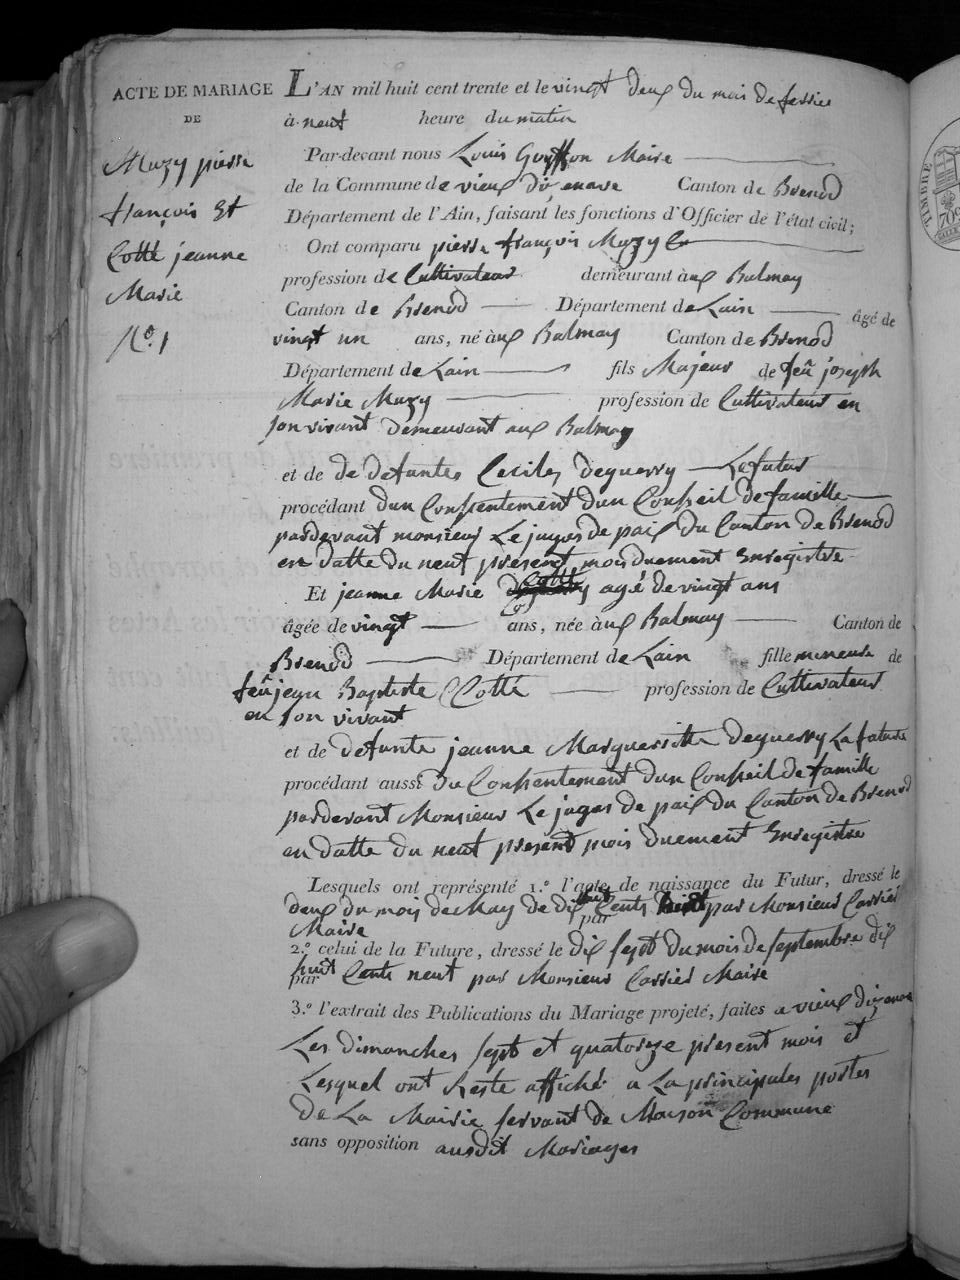 ACTE DE MARIAGE
DE
Muzy pierre
françois Et
Cotté jeanne
Marie
N.º 1
L'AN mil huit cent trente et le vingt deux du mois de fevrier
à neuf heure du matin
Par-devant nous Louis Maire
de la Commune de vieux Canton de Brenod
Département de l'Ain, faisant les fonctions d'Officier de l'état civil;
Ont comparu pierre françois Muzy
profession de Cultivateur demeurant à aux Balmay
Canton de Brenod Département de Lain âgé de
vingt un ans, né à aux Balmay Canton de Brenod
Département de Lain fils Majeur de feu joseph
Marie Muzy profession de Cultivateur en
son vivant demeurant aux Balmay
et de de defunte Cecile deguerry Le futur
procédant dun Consentement dun Conseil de famille
pardevant monsieur Le juge de paix du Canton de Brenod
en datte du neuf present mois duement Enregistre
Et jeanne Marie Cotté agé de vingt ans
âgée de vingt ans, née à aux Balmay Canton de
Brenod Département de Lain fille mineure de
feu jean Baptiste Cotté profession de Cultivateur
en son vivant
et de defunte jeanne Margueritte deguerry La future
procédant aussi du Consentement dun Conseil de famille
pardevant Monsieur Le juge de paix du Canton de Brenod
en datte du neuf present mois duement Enregistre
Lesquels ont représenté 1.º l'acte de naissance du Futur, dressé le
deux du mois de May de dix huit Cents par Monsieur Carrier
par
Maire
2.º celui de la Future, dressé le dix sept du mois de septembre dix
huit Cents neuf par Monsieur Carrier Maire
par
3.º l'extrait des Publications du Mariage projeté, faites a vieux
Les dimanches sept et quatorze present mois et
Lesquel ont Reste affiché a La principales portes
de La Mairie servant de Maison Commune
sans opposition ausdit Mariages
TIMBRE